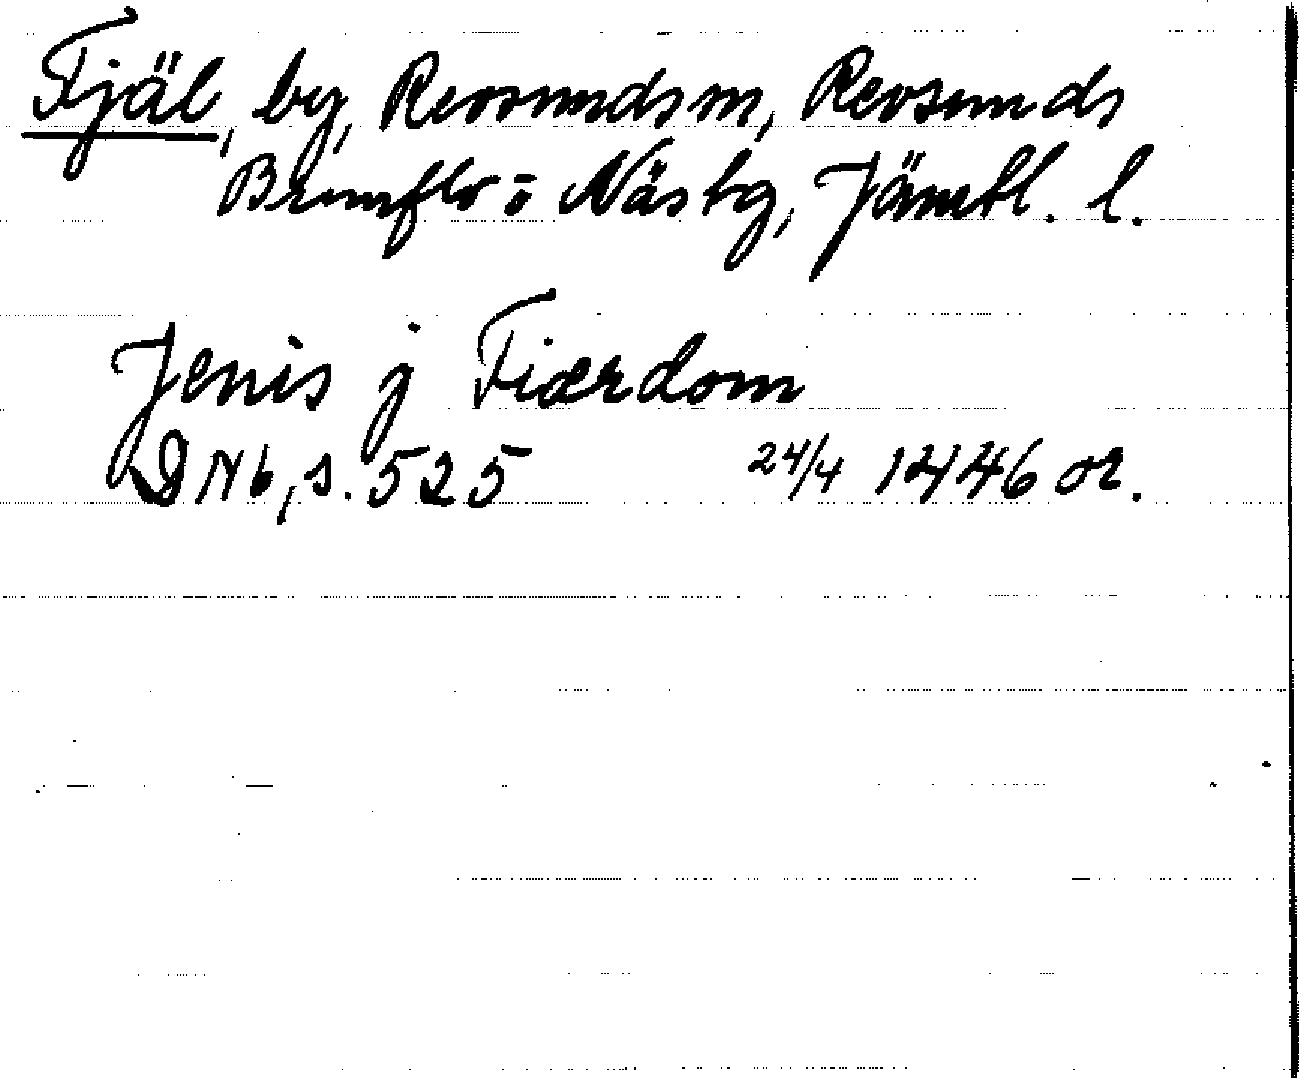 Fjäl, by, Revsunds sn, Revsunds
Brunflo o Näs tg, Jämtl. l.
Jenis j Fiærdom
DN 6, s. 525 24/4 1446 or.